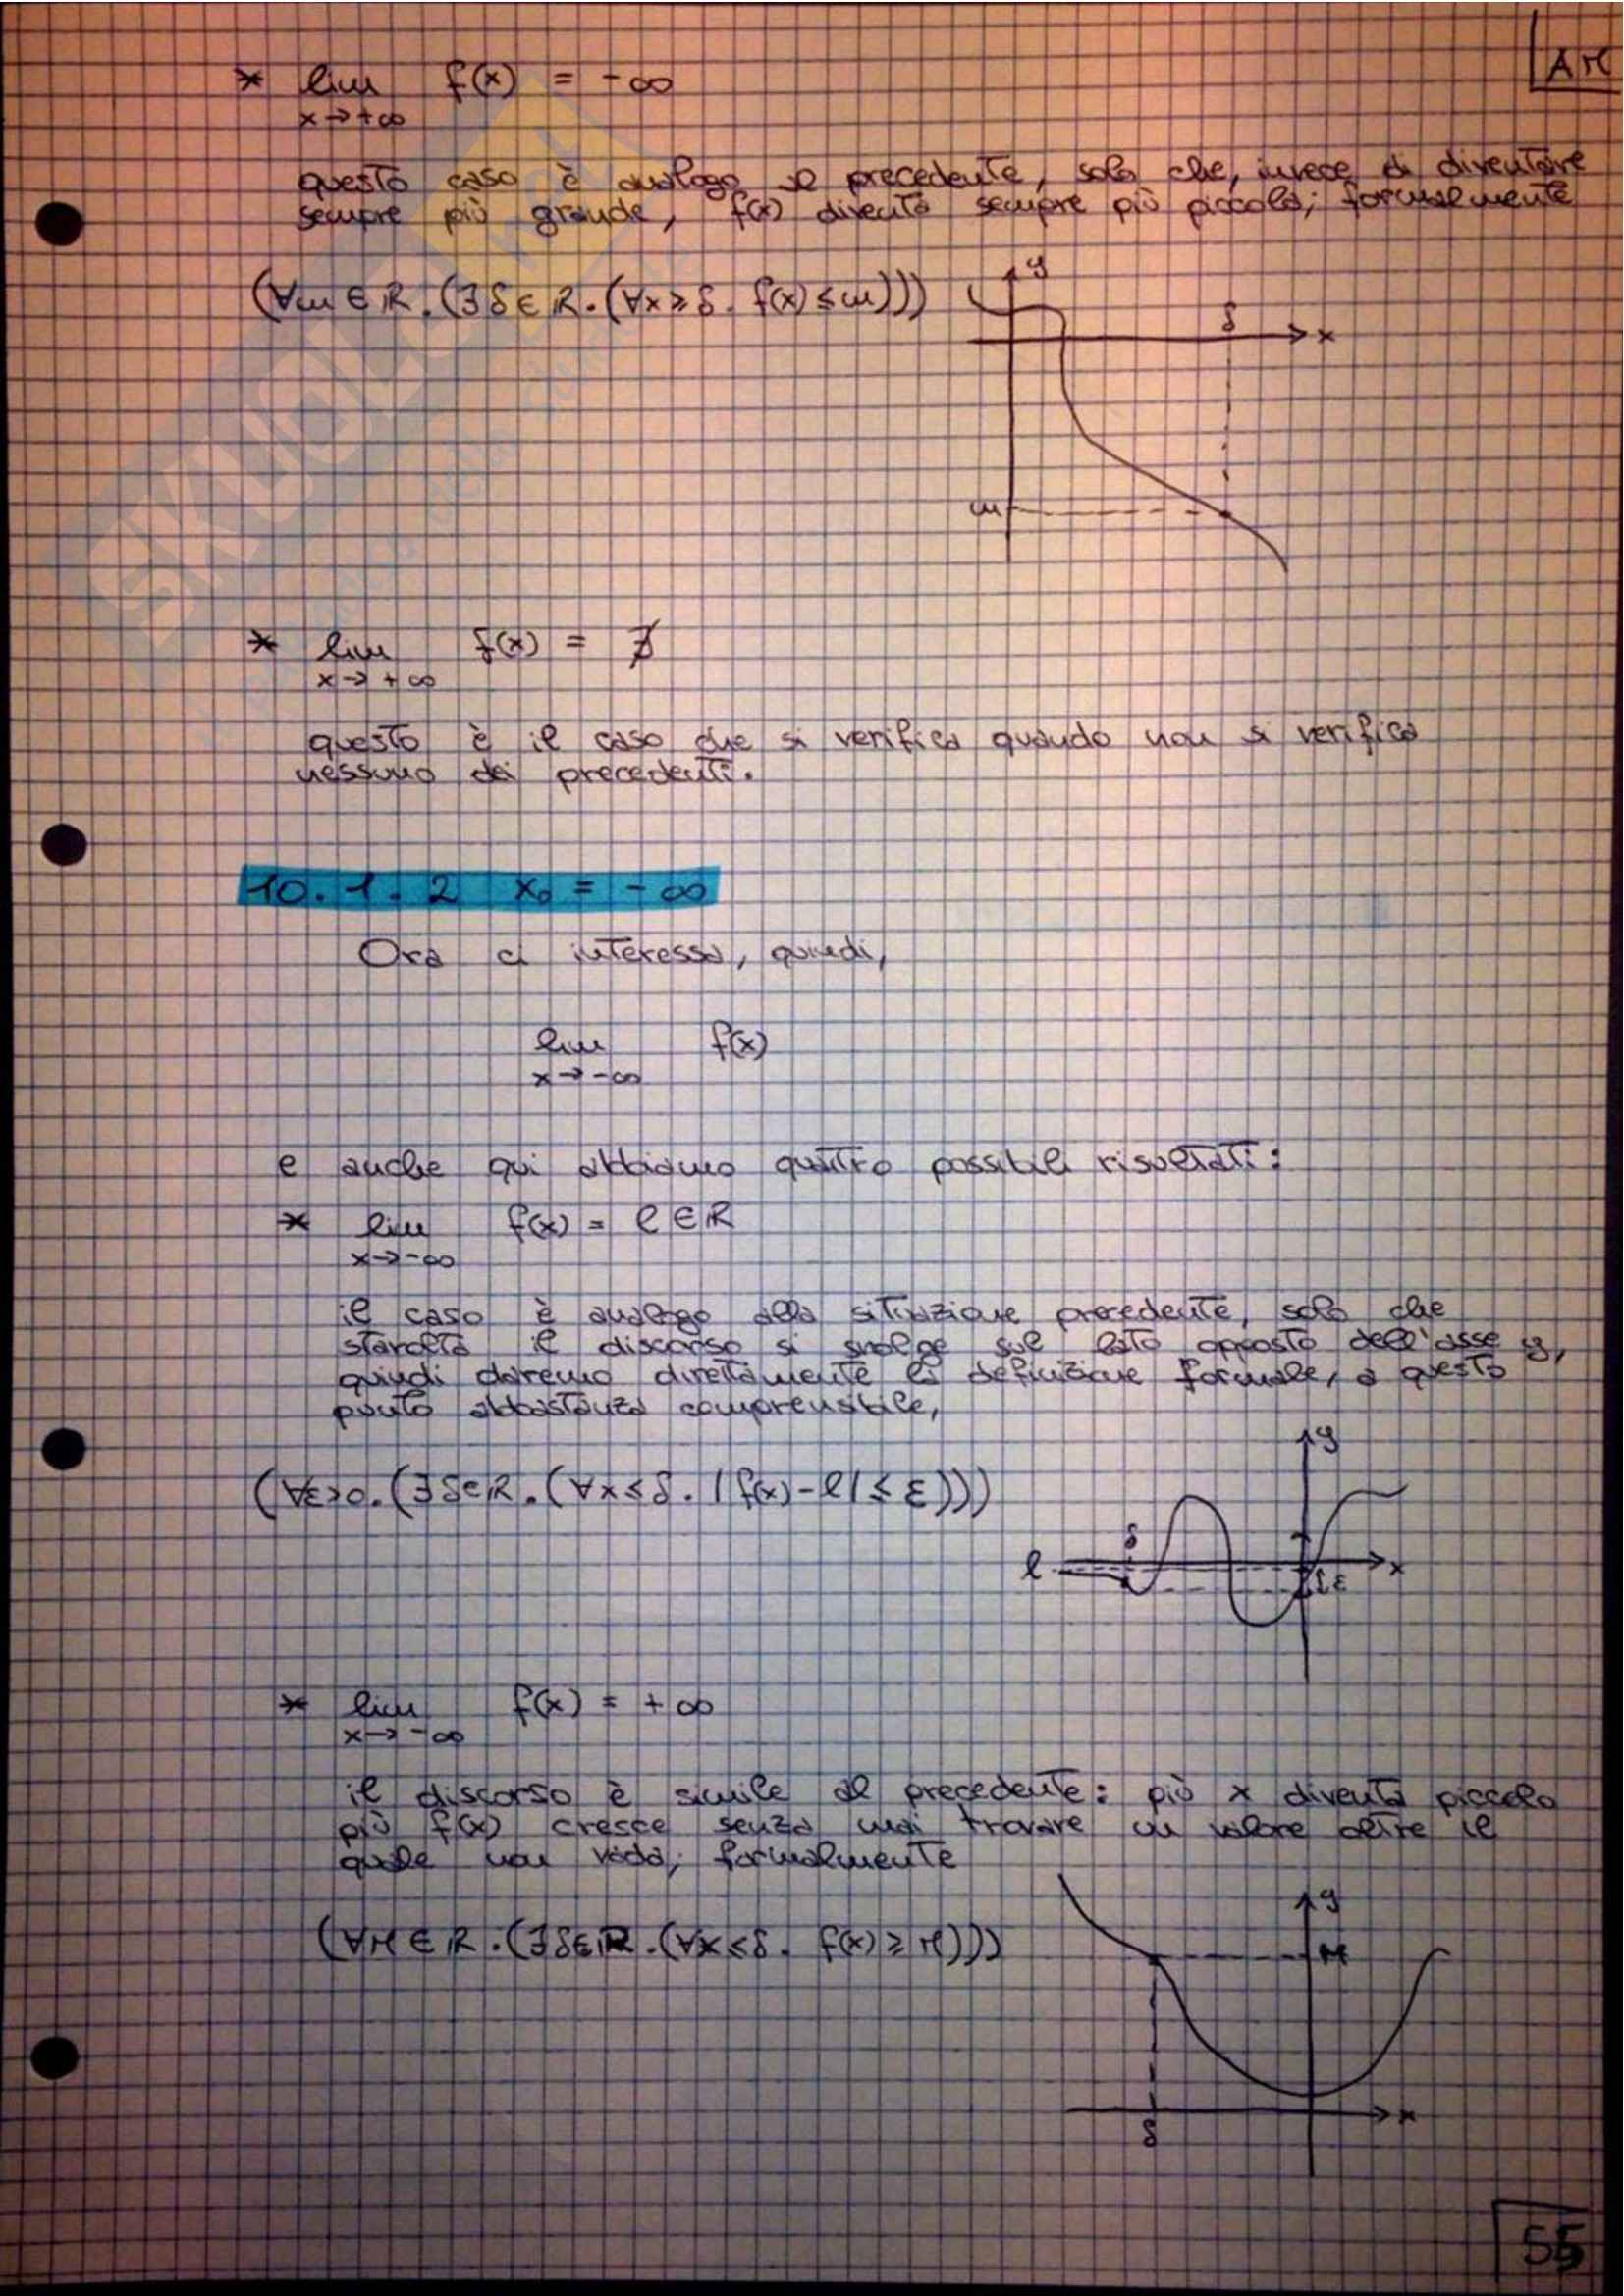 AM
* lim f(x) = -∞
x→+∞
questo caso è analogo al precedente, solo che, invece di diventare
sempre più grande, f(x) diventa sempre più piccola; formalmente
(∀m∈R.(∃δ∈R.(∀x≥δ. f(x)≤m)))
y
δ
x
m
* lim f(x) = ∄
x→+∞
questo è il caso che si verifica quando non si verifica
nessuno dei precedenti.
10.1.2 x₀ = -∞
Ora ci interessa, quindi,
lim f(x)
x→-∞
e anche qui abbiamo quattro possibili risultati:
* lim f(x) = l∈R
x→-∞
il caso è analogo alla situazione precedente, solo che
stavolta il discorso si svolge sul lato opposto dell'asse y,
quindi daremo direttamente la definizione formale, a questo
punto abbastanza comprensibile,
(∀ε>0.(∃δ∈R.(∀x≤δ. |f(x)-l|≤ε)))
y
δ
l
x
ε
* lim f(x) = +∞
x→-∞
il discorso è simile al precedente: più x diventa piccolo
più f(x) cresce senza mai trovare un valore oltre il
quale non vada; formalmente
(∀M∈R.(∃δ∈R.(∀x≤δ. f(x)≥M)))
y
M
x
δ
55